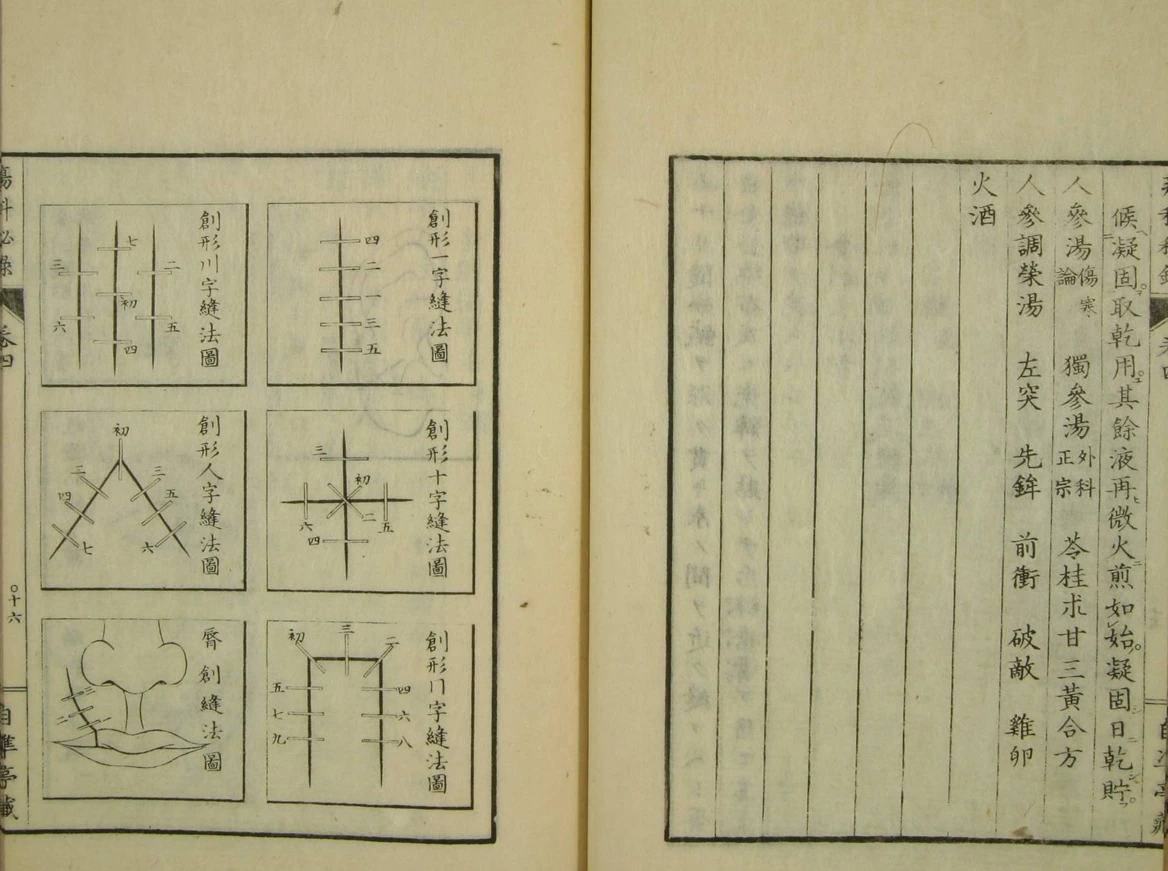 候凝固取乾用其餘液再微火煎如始凝固日乾貯
人參湯傷寒論　獨參湯外科正宗　苓桂朮甘三黃合方
人參調榮湯　左突　先鉾　前衝　破敵　雞卵
火酒
創形一字縫法圖
四
二
三
五
創形川字縫法圖
七
三
二
初
六
五
四
創形十字縫法圖
三
初
六
二
五
四
創形人字縫法圖
初
二
三
四
五
七
六
初
三
二
五
四
七
六
九
八
脣創縫法圖
卷四
十六